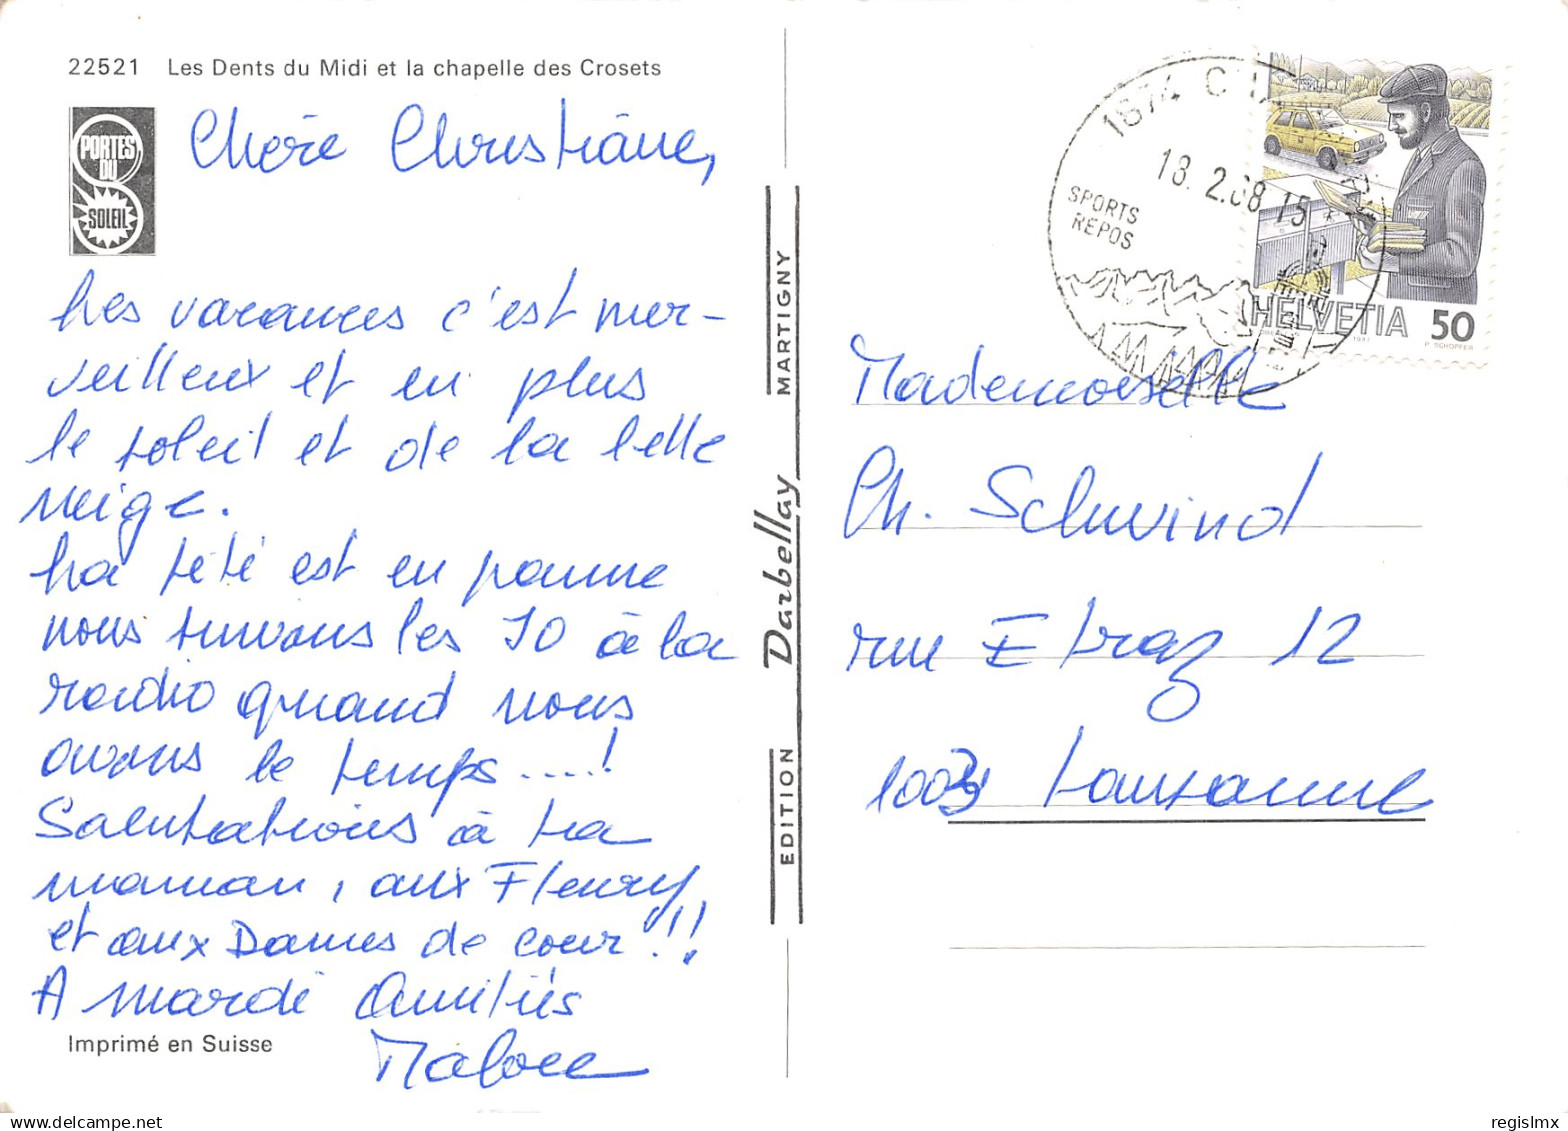 22521 Les Dents du Midi et la chapelle des Crosets
PORTES
DU
SOLEIL
Chère Christiane,
Les vacances c'est mer-
veilleux et en plus
le soleil et de la belle
neige.
La télé est en panne
nous suivons les JO à la
radio quand nous
avons le temps....!
Salutations à ta
maman, aux Fleury
et aux Dames de cœur!!!
A mardi Amitiés
Imprimé en Suisse
EDITION Darbellay MARTIGNY
1874 CHA
18.2.88 15
SPORTS
REPOS
HELVETIA 50
1987 P. SCHOPFER
Mademoiselle
Ch. Schwind
rue Etraz 12
1003 Lausanne
regislmx